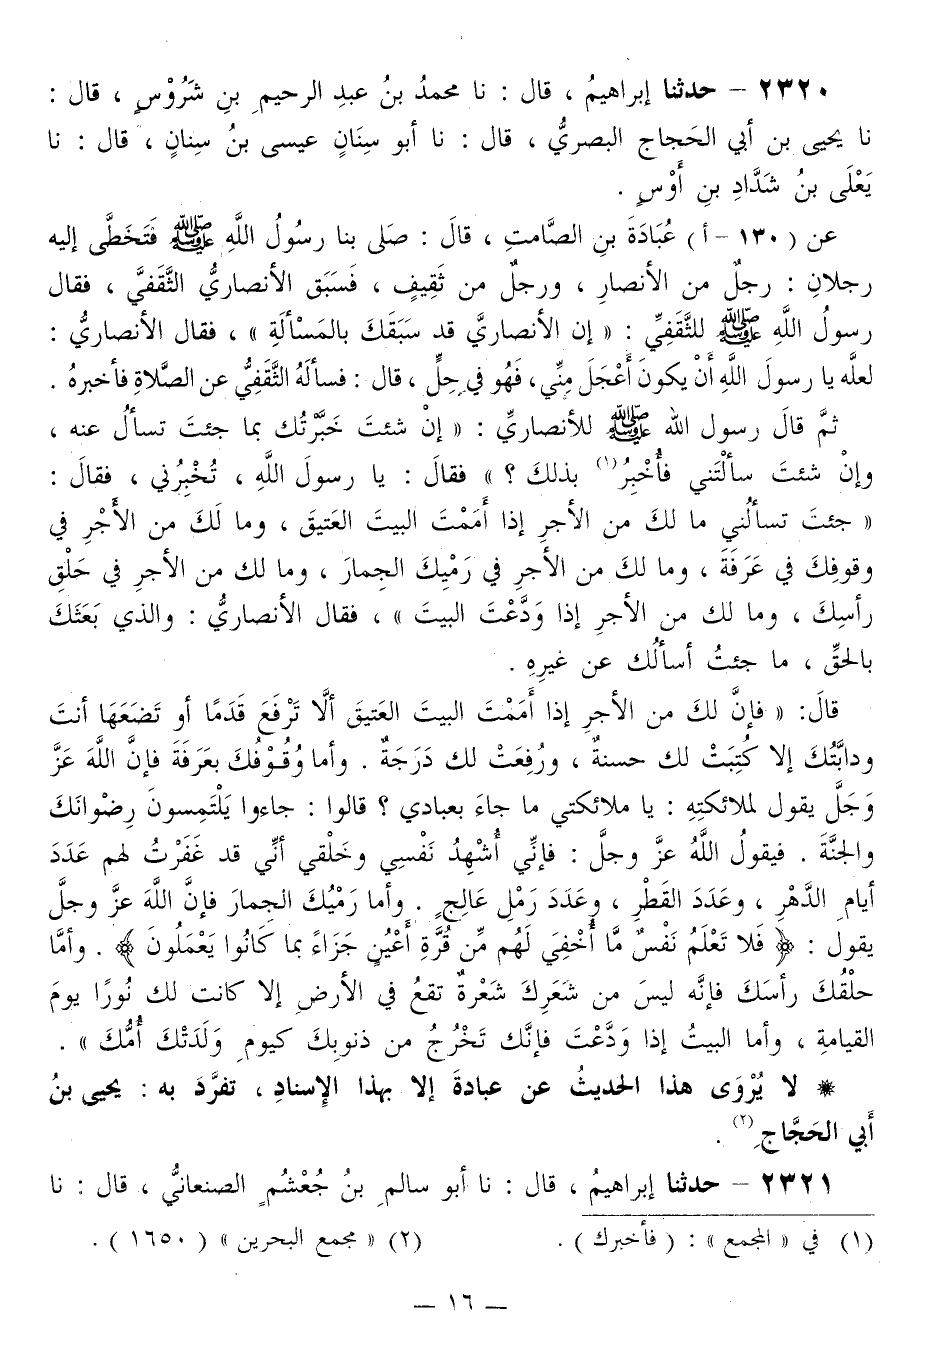 ٢٣٢٠ – حدثنا إبراهيمُ ، قال : نا محمدُ بنُ عبدِ الرحيمِ بنِ شَرُوْسٍ ، قال :
نا يحيى بن أبي الحَجاج البصريُّ ، قال : نا أبو سِنَانٍ عيسى بنُ سِنانٍ ، قال : نا
يَعْلَى بنُ شَدَّادِ بنِ أَوْسٍ .
عن ( ١٣٠ – أ ) عُبَادَةَ بنِ الصَّامتِ ، قالَ : صَلى بنا رسُولُ اللَّهِ ﷺ فَتَخَطَّى إليه
رجلانِ : رجلٌ من الأنصارِ ، ورجلٌ من ثَقِيفٍ ، فَسَبَق الأنصاريُّ الثَّقَفيَّ ، فقال
رسولُ اللَّهِ ﷺ للثَّقَفيِّ : « إن الأنصاريَّ قد سَبَقَكَ بالمَسْألَةِ » ، فقال الأنصاريُّ :
لعلَّه يا رسولَ اللَّهِ أَنْ يكونَ أَعْجَلَ مِنِّي، فَهُو في حِلٍّ ، قال : فسألَهُ الثَّقَفيُّ عن الصَّلاةِ فأخبرهُ .
ثمَّ قالَ رسول الله ﷺ للأنصاريِّ : « إنْ شئتَ خَبَّرْتُك بما جئتَ تسألُ عنه ،
وإنْ شئتَ سألْتَني فأُخْبِرُ (١) بذلكَ ؟ » فقالَ : يا رسولَ اللَّهِ ، تُخْبِرُني ، فقالَ :
« جئتَ تسألُني ما لكَ من الأجرِ إذا أَمَمْتَ البيتَ العَتيقَ ، وما لَكَ من الأَجْرِ في
وقوفِكَ في عَرَفَةَ ، وما لكَ من الأجرِ في رَمْيِكَ الجِمارَ ، وما لك من الأجرِ في حَلْقِ
رأسِكَ ، وما لك من الأجرِ إذا وَدَّعْتَ البيتَ » ، فقال الأنصاريُّ : والذي بَعَثَكَ
بالحَقِّ ، ما جئتُ أسألُك عن غيرِهِ .
قالَ: « فإنَّ لكَ من الأجرِ إذا أَمَمْتَ البيتَ العَتيقَ ألَّا تَرْفَعَ قَدَمًا أو تَضَعَهَا أنتَ
ودابَّتُكَ إلا كُتِبَتْ لك حسنةٌ ، ورُفِعَتْ لك دَرَجَةٌ . وأما وُقُـوْفُكَ بعَرَفَةَ فإنَّ اللَّهَ عَزَّ
وَجَلَّ يقول لملائكتِهِ : يا ملائكتي ما جاءَ بعبادي ؟ قالوا : جاءوا يَلْتَمِسونَ رِضْوانَكَ
والجنَّةَ . فيقولُ اللَّهُ عزَّ وجلَّ : فإنِّي أُشْهِدُ نَفْسِي وخَلْقي أنِّي قد غَفَرْتُ لهم عَدَدَ
أيامِ الدَّهْرِ ، وعَدَدَ القَطْرِ ، وعَدَدَ رَمْلِ عَالِجٍ . وأما رَمْيُكَ الجِمارَ فإنَّ اللَّهَ عز وجلَّ
يقول : ﴿ فَلا تَعْلَمُ نَفْسٌ مَّا أُخْفِيَ لَهُم مِّن قُرَّةِ أَعْيُنٍ جَزَاءً بما كَانُوا يَعْمَلُونَ ﴾ . وأمَّا
حلْقُكَ رأسَكَ فإنَّه ليسَ من شَعَرِكَ شَعْرةٌ تقعُ في الأرضِ إلا كانت لك نُورًا يومَ
القيامةِ ، وأما البيتُ إذا وَدَّعْتَ فإنَّك تَخْرُجُ من ذنوبِكَ كيومِ وَلَدَتْكَ أُمُّكَ » .
* لا يُرْوَى هذا الحديثُ عن عبادةَ إلا بهذا الإسنادِ ، تفرَّدَ به : يحيى بنُ
أَبي الحَجَّاجِ (٢) .
٢٣٢١ – حدثنا إبراهيمُ ، قال : نا أبو سالمِ بنُ جُعْشُمٍ الصنعانيُّ ، قال : نا
(١) في « المجمع » : ( فأخبرك ) . (٢) « مجمع البحرين » ( ١٦٥٠ ) .
— ١٦ —